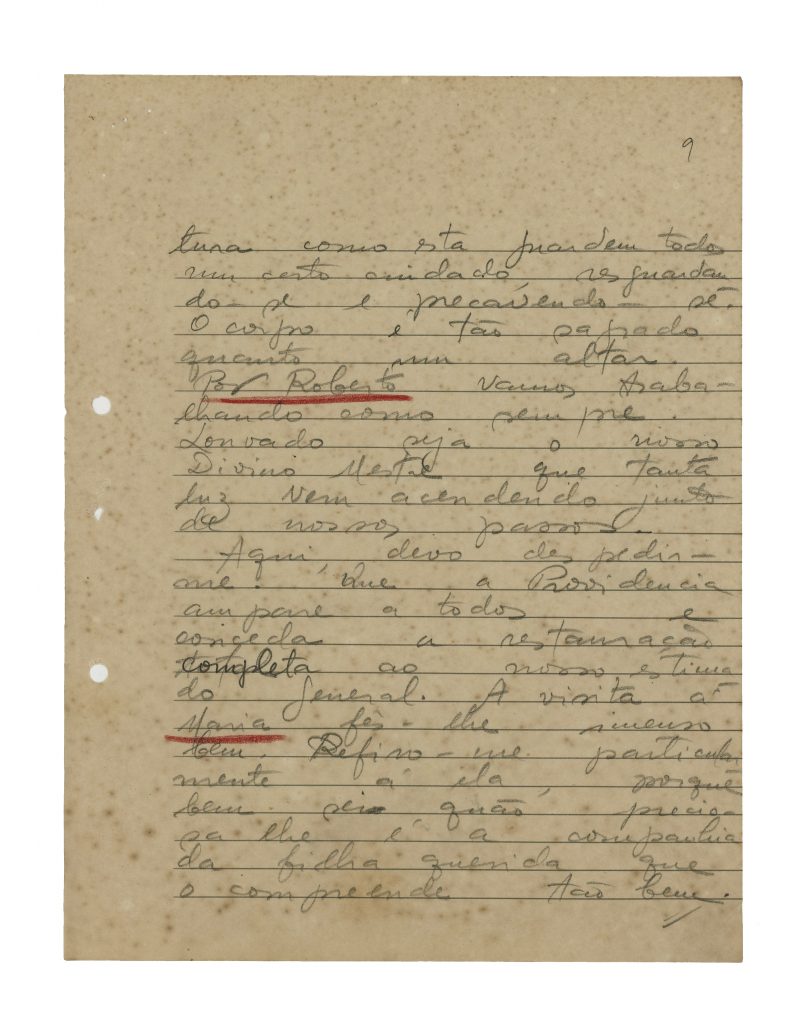 9
tura como esta guardem todos
um certo cuidado, resguardan
do-se e precavendo-se.
O corpo é tão sagrado
quanto um altar.
Por Roberto vamos traba-
lhando como sempre.
Louvado seja o nosso
Divino Mestre que tanta
luz vem acendendo junto
de nossos passos.
Aqui, devo despedir-
me. Que a Providencia
ampare a todos e
conceda a restauração
completa ao nosso estima
do General. A visita á
Maria fês-lhe imenso
bem. Refiro-me particular
mente á ela, porquê
bem sei quão precio-
sa lhe é a companhia
da filha querida que
o compreende tão bem.